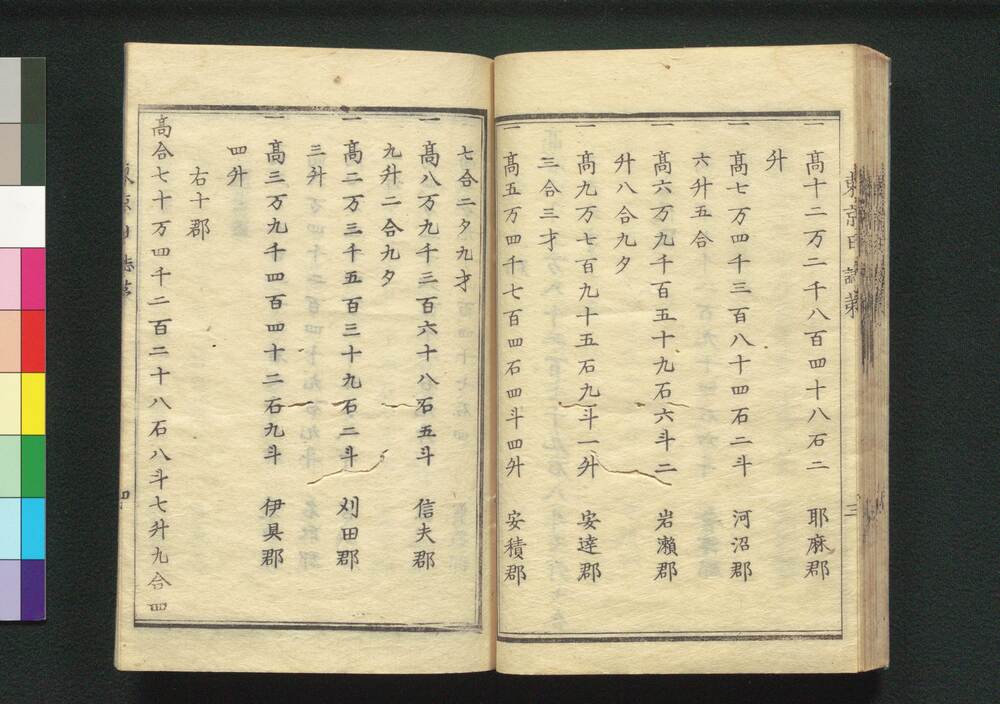 一 高十二万二千八百四十八石二 耶麻郡
升
一 高七万四千三百八十四石二斗 河沼郡
六升五合
一 高六万九千百五十九石六斗二 岩瀬郡
升八合九夕
一 高九万七百九十五石九斗一升 安達郡
三合三才
一 高五万四千七百四石四斗四升 安積郡
七合二夕九才
一 高八万九千三百六十八石五斗 信夫郡
九升二合九夕
一 高二万三千五百三十九石二斗 刈田郡
三升
一 高三万九千四百四十二石九斗 伊具郡
四升
右十郡
高合七十万四千二百二十八石八斗七升九合四
東京日誌
三
四